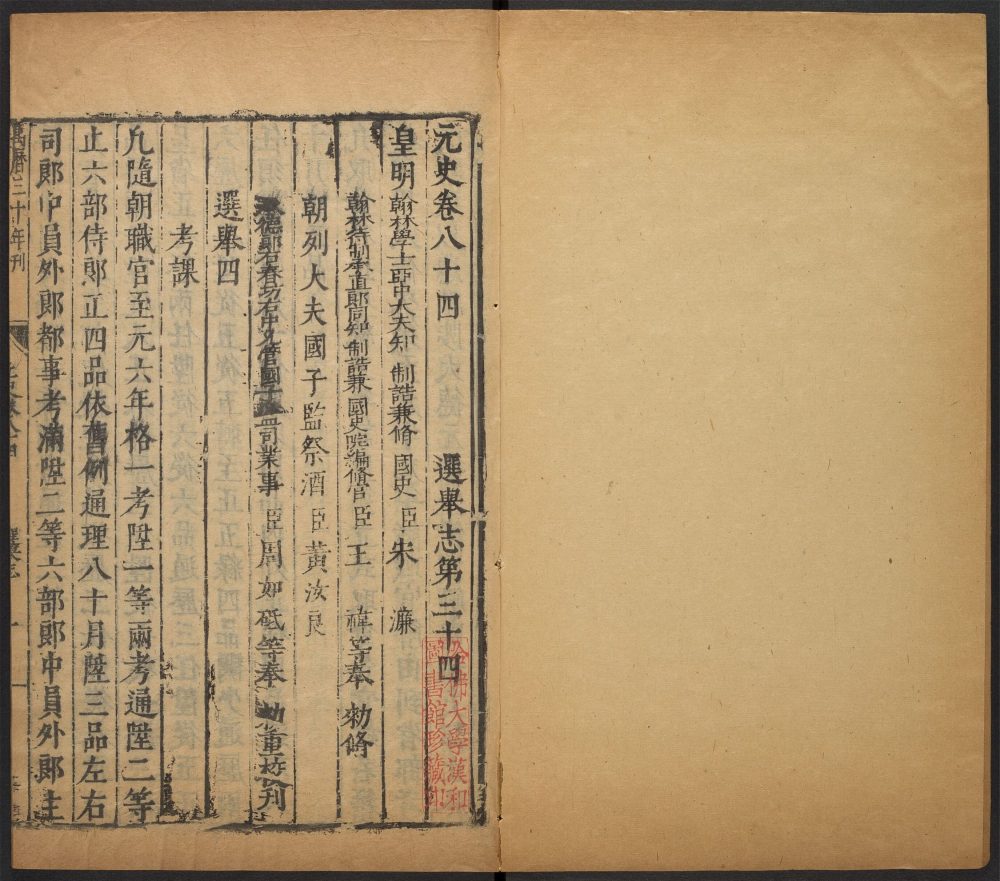 元史卷八十四 選舉志第三十四
皇明翰林學士亞中大夫知 制誥兼脩 國史 臣 宋 濂
翰林待制承直郎同知 制誥兼 國史院編脩官 臣 王 禕等奉 勑脩
朝列大夫國子監祭酒 臣 黃汝良
德郎右春坊右中允管國子監司業事 臣 周如砥等奉 勑重校刊
選舉四
考課
凢隨朝職官至元六年格一考陞一等兩考通陞二等
止六部侍郎正四品依舊例通理八十月陞三品左右
司郎中員外郎都事考滿陞二等六部郎中員外郎主
萬曆三十年刊
哈佛大學漢和
圖書館珍藏印